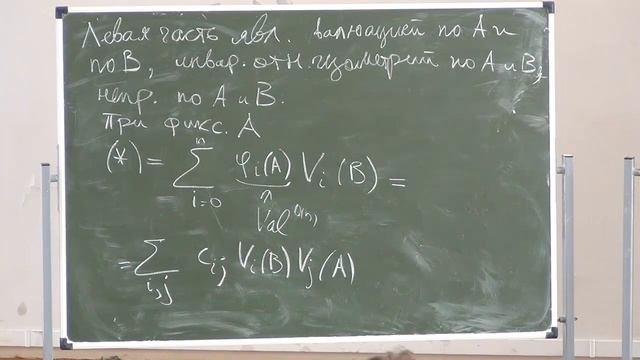 Левая часть явл. валюацией по A и
по B, инвар. отн. изометрий по A и B,
непр. по A и B.
При фикс. A
(*) = ∑_{i=0}^{n} φ_i(A) V_i(B) =
↑
Val^{O(n)}
= ∑_{i,j} c_{ij} V_i(B) V_j(A)